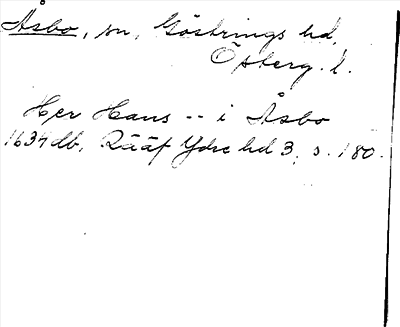 Åsbo, sn, Göstrings hd,
Österg. l.
Her Hans -- i Åsbo
1634 db, Rääf Ydre hd 3, s. 180.